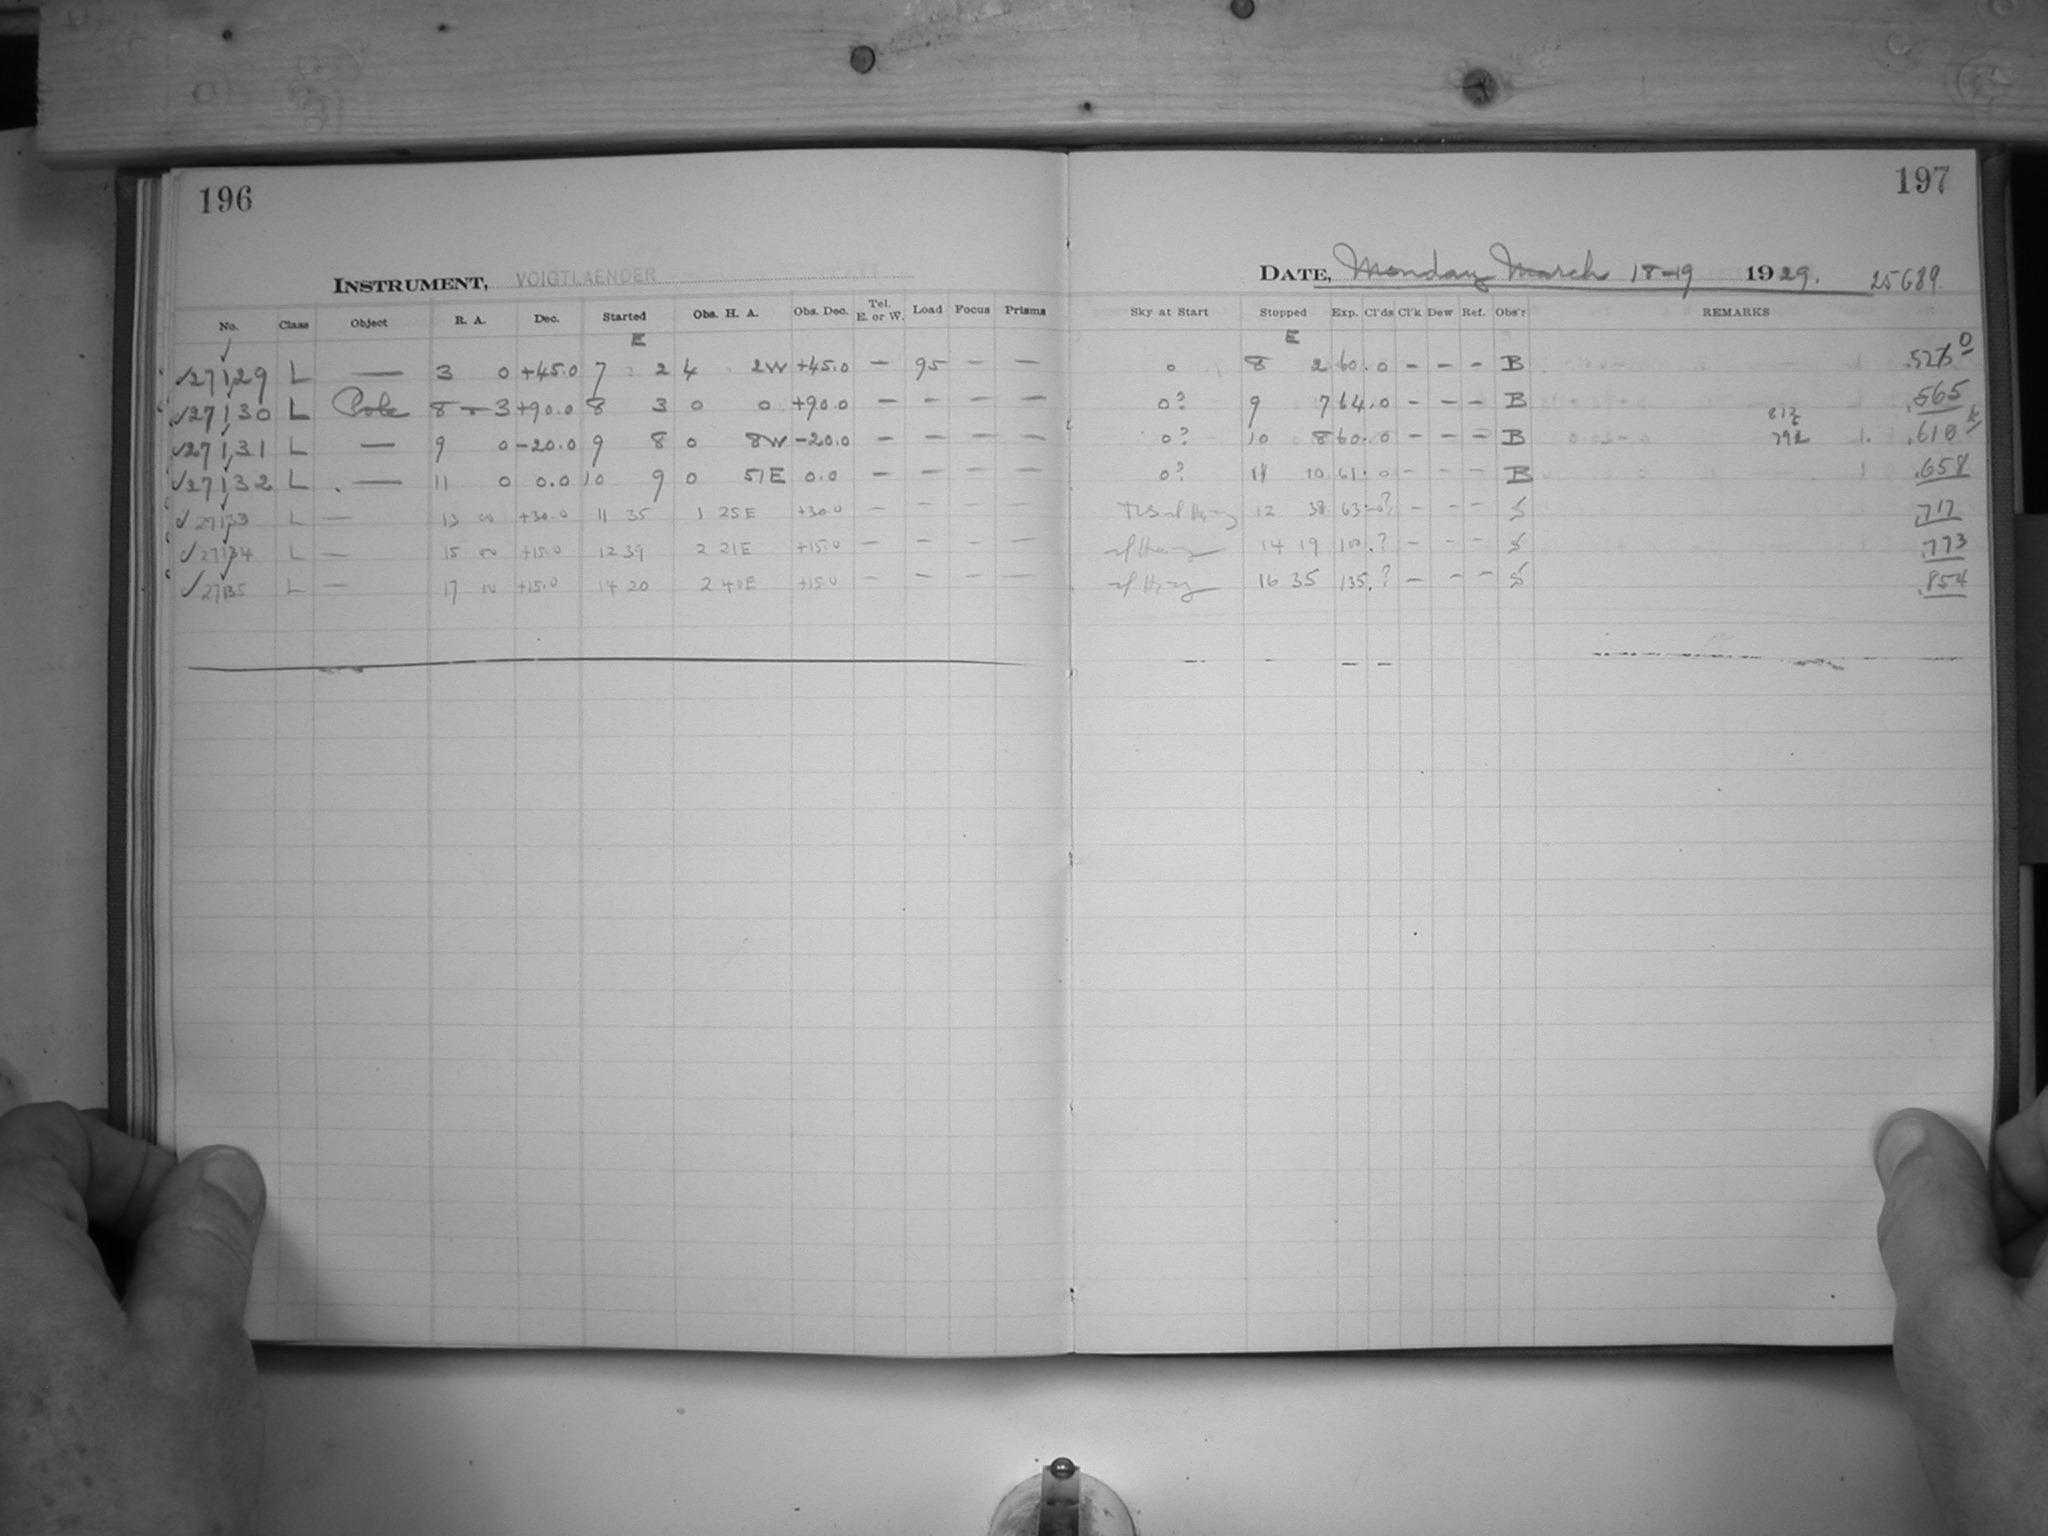 196
197
INSTRUMENT, VOIGTLAENDER
DATE, Monday March 18-19 1929. 25689
No. Class Object R. A. Dec. Started Obs. H. A. Obs. Dec. Tel. E. or W. Load Focus Prisms Sky at Start Stopped Exp. Cl'ds Cl'k Dew Ref. Obs'r REMARKS
E E
✓27129 L — 3 0 +45.0 7 2 4 2W +45.0 — 95 — — 0 8 2 60. 0 — — — B
✓27130 L Pole 8 3 +90.0 8 3 0 0 +90.0 — — — — 0? 9 7 64. 0 — — — B .565
✓27131 L — 9 0 -20.0 9 8 0 8W -20.0 — — — — 0? 10 8 60. 0 — — — B
✓27132 L — 11 0 0.0 10 9 0 51E 0.0 — — — — 0? 11 10 61. 0 — — — B .658
✓27133 L — 13 00 +30.0 11 35 1 25E +30.0 — — — — 12 38 63 0? — — — .717
✓27134 L — 15 00 +15.0 12 39 2 21E +15.0 — — — — 14 19 100. ? — — — .773
✓27135 L — 17 00 +15.0 14 20 2 40E +15.0 — — — — 16 35 135. ? — — — .854